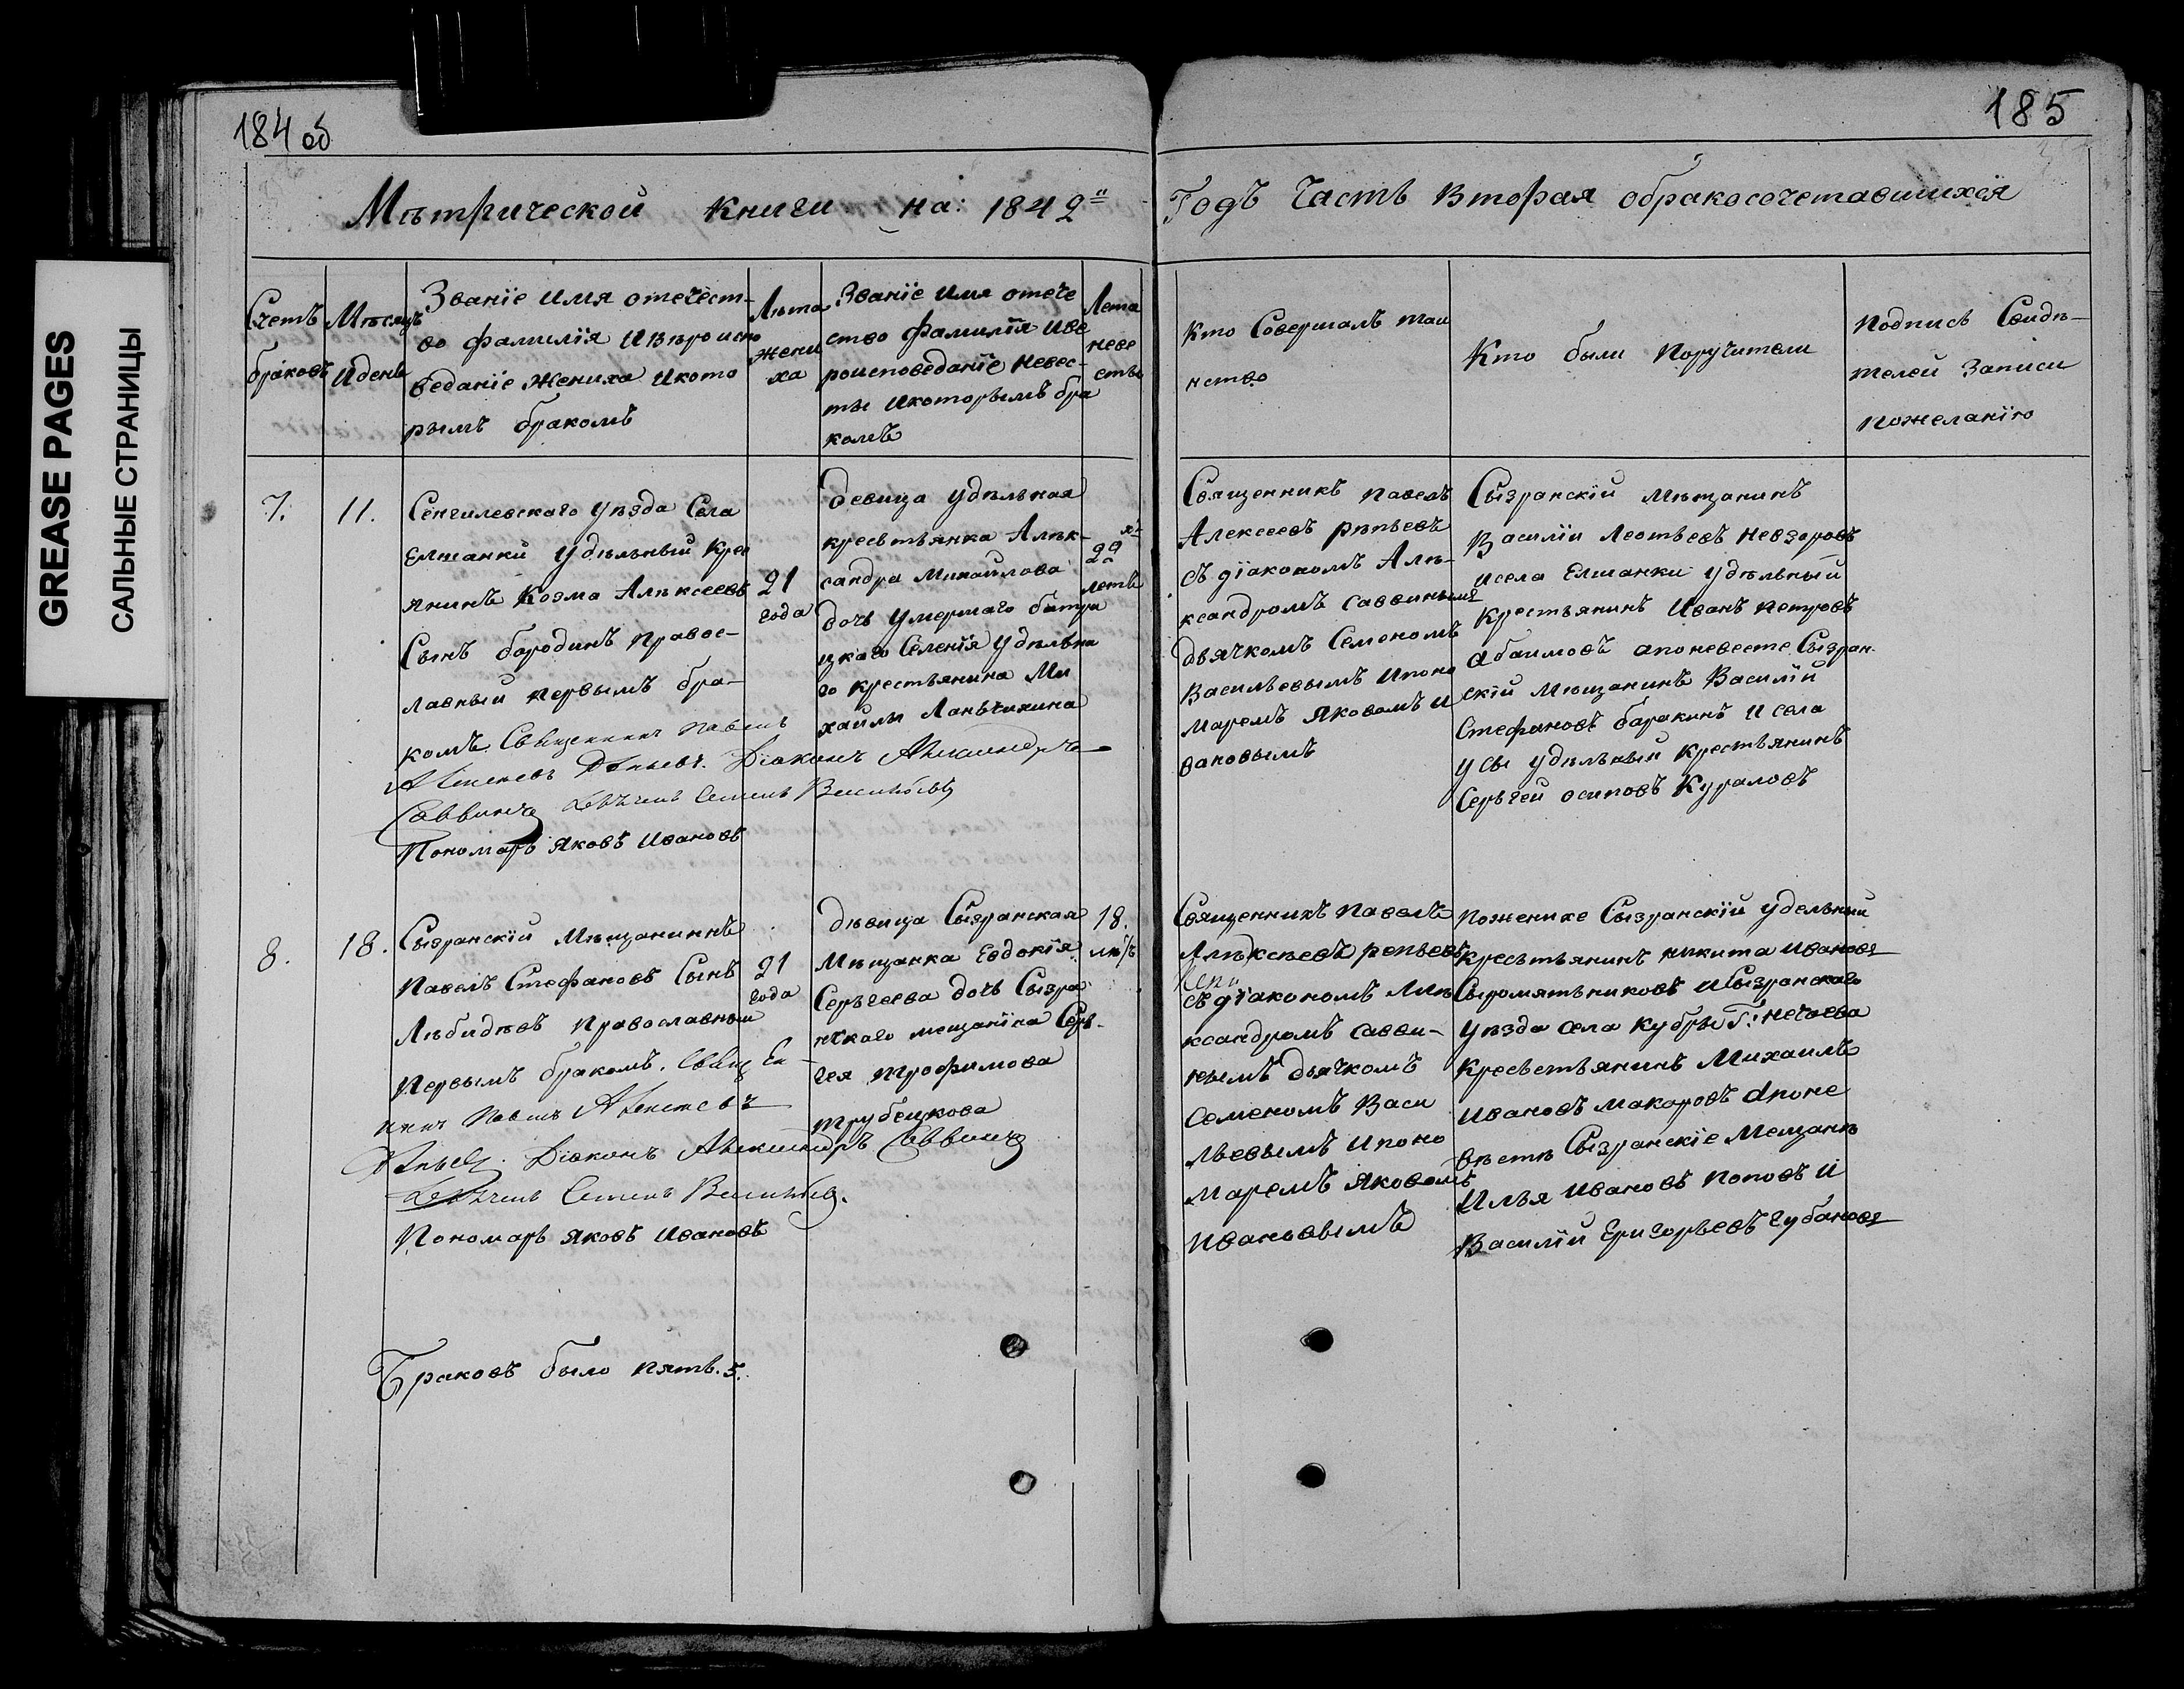 GREASE PAGES
САЛЬНЫЕ СТРАНИЦЫ
184 об
185
Мѣтрической книги на: 1842й
Годъ Часть Вторая обракосочетавшихся
Счетъ
браковъ
Мѣсяцъ
И день
Званїе имя отечест-
во фамилїя И вѣроиспо
веданїе Жениха И кото
рымъ бракомъ
Лѣта
жени
ха
Званїе имя отече
ство фамилїя иве
роисповеданїе невес-
ты икоторымъ бра
комъ
Лета
неве
сты
Кто Совершалъ таи
нство
Кто были поручители
Подпись Свидѣ-
телей Записи
пожеланїю
7.
11.
Сенгилевскаго уѣзда Села
Елшанки удѣльный Крес
янинъ Козма Алѣксеевъ
Сынъ бородинъ правос-
лавный первымъ бра-
комъ. Священникъ Павелъ
Алексеевъ Рѣпьевъ. Дїаконъ Александръ
Саввинъ Дьячекъ Семенъ Васильевъ
Пономарь Яковъ Ивановъ
21
года
девица удѣльная
кресьтьянка Алѣк-
сандра Михайлова
дочь умершаго батра
цкаго Селенїя удѣльна
го крестьянина Ми
хайлы Ланьчихина
22
летъ
Священникъ павелъ
Алексеевъ рѣпьевъ
съ дїакономъ Алѣ-
ксандромъ саввинымъ
дьячкомъ Семеномъ
Васильевымъ Ипоно
маремъ Яковомъ и
вановымъ
Сызранскїй мѣщанинъ
Василїи Леотьевъ Невзоровъ
исела Елшанки удѣльный
крестьянинъ Иванъ петровъ
абаимовъ апоневесте Сызран-
скїй мѣщанинъ Василїй
Стефановъ баракинъ и села
усы удѣльный крестьянинъ
Серьгей осиповъ Кураловъ
8.
18.
Сызранскїй Мѣщанинъ
Павелъ Стефановъ Сынъ
Лѣбидѣвъ православный
первымъ бракомъ. Священ-
никъ Павелъ Алексеевъ
Рѣпьевъ. Дїаконъ Александръ Саввинъ
Дьячекъ Семенъ Васильевъ.
Пономарь Яковъ Ивановъ
21
года
дѣвица Сызранская
Мѣщанка Евдокїя
Серьгеева дочь Сызра
нскаго мещанїна Серь-
гея трофимова
трубецкова
18.
лѣтъ
Священникъ павелъ
Алѣксѣевъ репьевъ
съ дїакономъ Алѣ
ксандромъ савви-
нымъ дьячкомъ
Семеномъ Васи
льевымъ ипоно
маремъ Яковомъ
Ивановымъ
поженихе Сызранскїй удельный
кресьтьянинъ никита ивановъ
Сыромятьниковъ иСызранскаго
уѣзда села кубры Г: нечаева
кресьстьянинъ Михаилъ
ивановъ макаровъ апоне
вѣстѣ Сызранскїе мещанѣ
Илья ивановъ поповъ и
Василїи Григорьевъ губановъ
Браковъ было пять. 5.